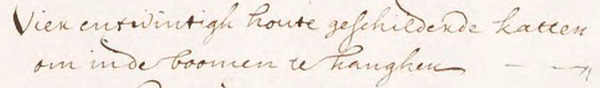 Vier entwintigh houte geschilderde katten
om inde boomen te hanghen — — "